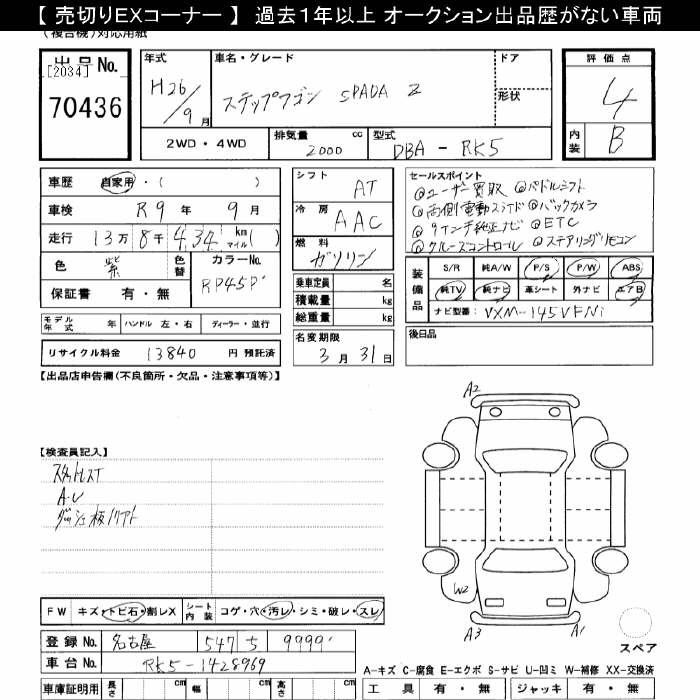 【 売切りEXコーナー 】 過去1年以上 オークション出品歴がない車両
(複合機)対応用紙
出品No.
[2034]
70436
年式
H26/9月
車名・グレード
ステップワゴン SPADA Z
ドア
形状
2WD・4WD
排気量 2000 cc
型式 DBA - RK5
評価点
4
内装 B
車歴 自家用・( )
車検 R9年 9月
走行 13万 8千 434 km マイル( )
色 紫
色替
カラーNo. RP45P
保証書 有・無
モデル年式 年 ハンドル 左・右 ディーラー・並行
リサイクル料金 13840 円 預託済
シフト AT
冷房 AAC
燃料 ガソリン
乗車定員 名
積載量 kg
総重量 kg
名変期限
3月 31日
セールスポイント
◎ユーザー買取 ◎パドルシフト
◎両側電動スライド ◎バックカメラ
◎9インチ純正ナビ ◎ETC
◎クルーズコントロール ◎ステアリングリモコン
装備品
S/R 純A/W P/S P/W ABS
純TV 純ナビ 革シート 外ナビ エアB
ナビ型番: VXM-145VFNi
後日品
【出品店申告欄(不良箇所・欠品・注意事項等)】
【検査員記入】
スタットレスT
A・U
ダッシュ板ハリアト
A2
W2
A3
A1
スペア
FW キズ・トビ石・割レX シート内装 コゲ・穴・汚レ・シミ・破レ・スレ
登録No. 名古屋 547 5 9999
車台No. RK5-1428969
車庫証明用 長さ cm 幅 cm 高さ cm
A-キズ C-腐食 E-エクボ S-サビ U-凹ミ W-補修 XX-交換済
工具 有・無 ジャッキ 有・無